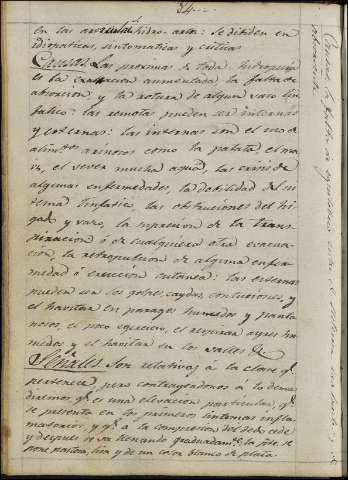 84..
en las articulaˢ hidro-artra: se dibiden en
idiopaticas, sintomaticas y criticas
Causas Las proximas de toda hidropesia
es la exalacion aumentada, la falta de
absorcion y la rotura de algun vaso lin
fatico: las remotas pueden ser internas
y esternas: las internas son el uso de
alimtᵒˢ arinosos como la patata, el
el vever mucha agua, las crisis de
algunas enfermedades, la debilidad del sis
tema linfatico, las obstrucciones del hi
gado y vazo, la supresion de la trans
piracion ó de cualquiera otra evacua
cion, la retropulsion de alguna enfer
medad ó ereccion cutanea: las esternas
pueden ser los golpes, caydas, contusiones, y
el havitar en parages humedos y panta
nosos, el poco egercicio, el respirar ayres hu
medos y el havitar en los valles &
Señales. Son relativas á la clase qᵉ
pertenece, pero contrayendonos á lo demas
diremos qᵉ es una elevacion particular, qᵉ
se presenta en los primeros sintomas infla
matorios, y qᵉ á la compresion del dedo cede
y despues se va llenando graduadamᵗᵉ, la pte. se
pone pastosa, lisa y de un color blanco de plata.